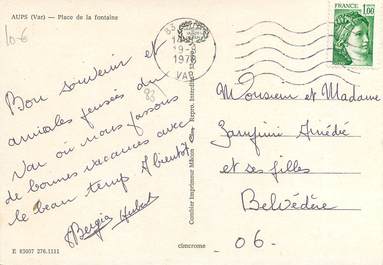 AUPS (Var) — Place de la fontaine
10-6
VAR
FRANCE
1,00
Bon souvenir et
amicales pensées du
Var où nous passons
de bonnes vacances avec
le beau temps A bientôt
Bergia Hubert
E 83007 276.1111
Combier Imprimeur Mâcon
cimcrome
Monsieur et Madame
et ses filles
Belvédère
- 06 -